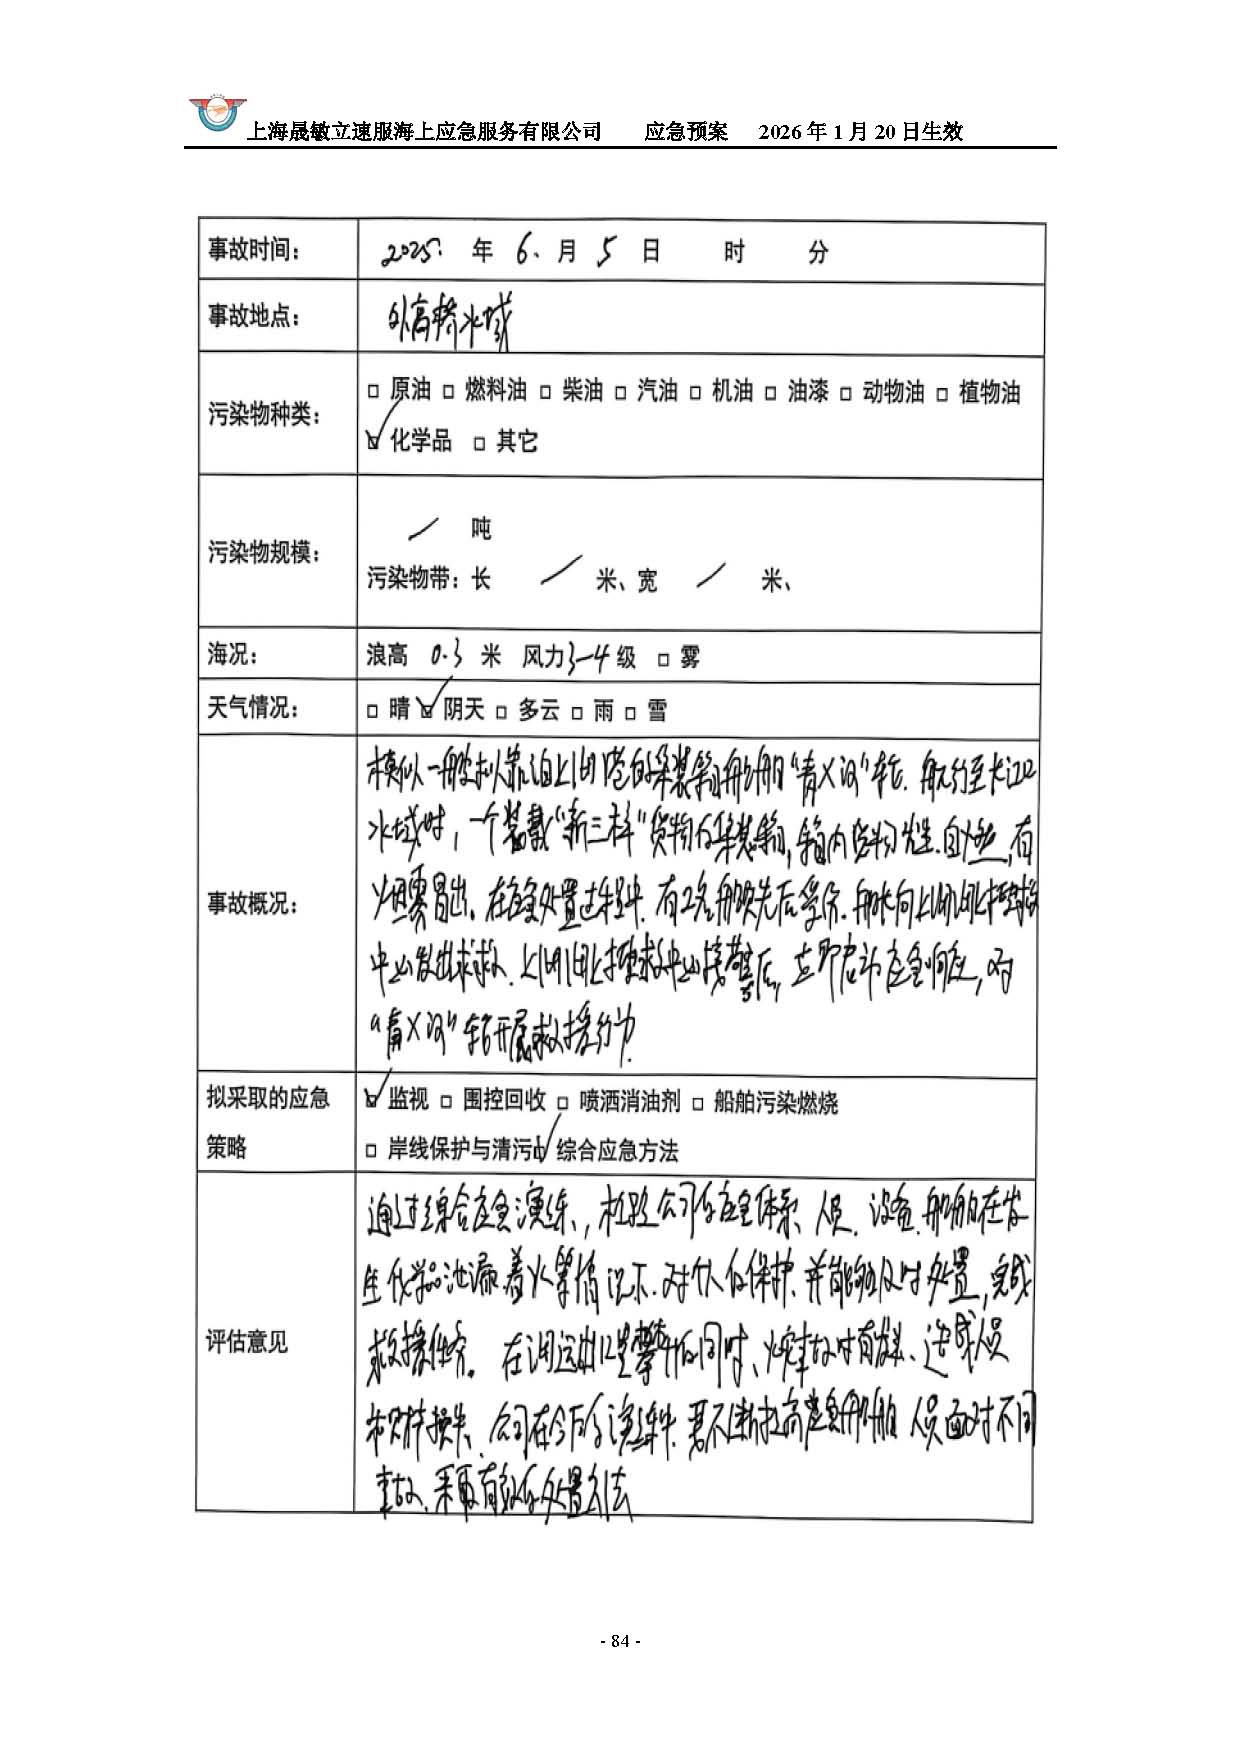 上海晟敏立速服海上应急服务有限公司 应急预案 2026年1月20日生效
事故时间： 2025 年 6 月 5 日 时 分
事故地点： 外高桥水域
污染物种类：
□ 原油 □ 燃料油 □ 柴油 □ 汽油 □ 机油 □ 油漆 □ 动物油 □ 植物油
☑ 化学品 □ 其它
污染物规模：
/ 吨
污染物带：长 / 米、宽 / 米、
海况： 浪高 0.3 米 风力 3-4 级 □ 雾
天气情况： □ 晴 ☑ 阴天 □ 多云 □ 雨 □ 雪
事故概况：
模拟一艘拟靠泊上海港的集装箱船舶"青X河"轮，航行至长江口
水域时，一个装载"新三样"货物的集装箱，箱内货物发生自燃，有
烟雾冒出。在应急处置过程中，有2名船员先后受伤，船长向上海海上搜救
中心发出求救。上海海上搜救中心接警后，立即启动应急响应，对
"青X河"轮开展救援行动.
拟采取的应急
策略
☑ 监视 □ 围控回收 □ 喷洒消油剂 □ 船舶污染燃烧
□ 岸线保护与清污 ☑ 综合应急方法
评估意见
通过综合应急演练，检验公司的应急体系、人员、设备、船舶在发
生化学品泄漏着火等情况下，对个人的保护，并能够及时处置，完成
救援任务。在 同时，火灾事故时有发生、造成人员
和财产损失，公司在今后的演练中，要不断提高应急船舶人员面对不同
事故，采取有效的处置方法
- 84 -